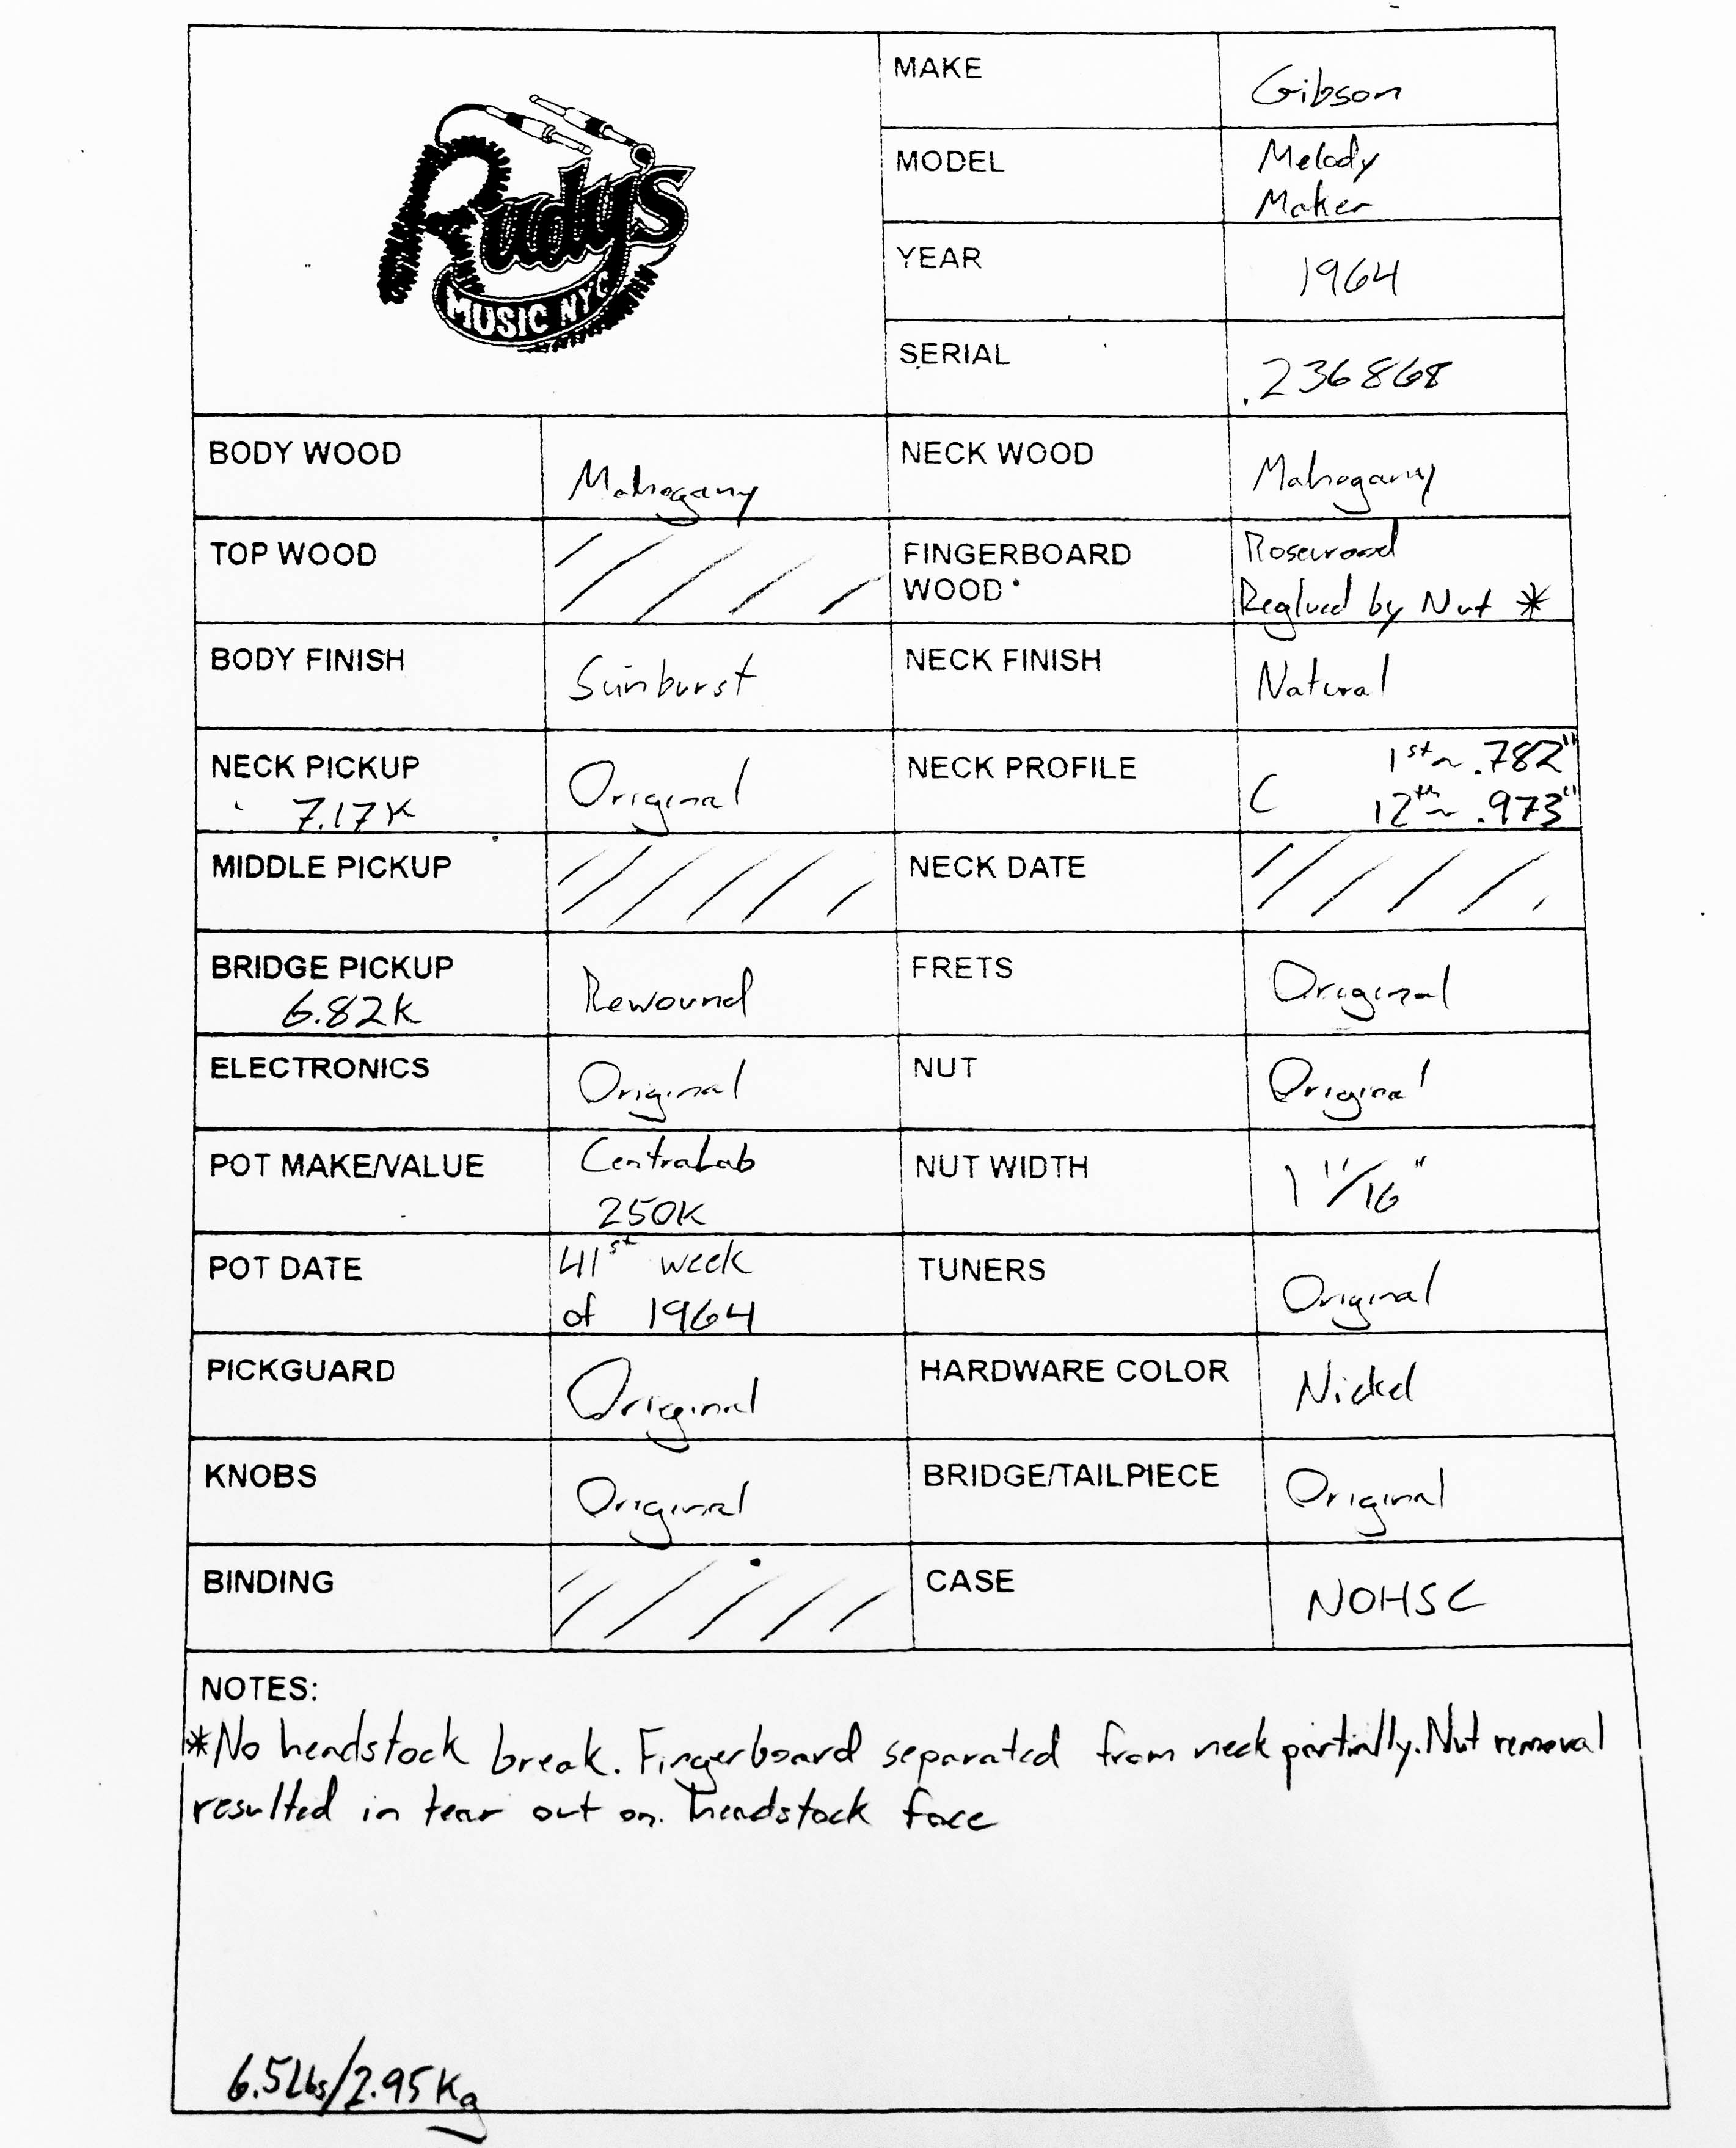 Rudy's
MUSIC NYC
MAKE
Gibson
MODEL
Melody
Maker
YEAR
1964
SERIAL
236868
BODY WOOD
Mahogany
NECK WOOD
Mahogany
TOP WOOD
FINGERBOARD
WOOD
Rosewood
Reglued by Nut *
BODY FINISH
Sunburst
NECK FINISH
Natural
NECK PICKUP
7.17K
Original
NECK PROFILE
C
1st ~ .782"
12th ~ .973"
MIDDLE PICKUP
NECK DATE
BRIDGE PICKUP
6.82K
Rewound
FRETS
Original
ELECTRONICS
Original
NUT
Original
POT MAKE/VALUE
CentraLab
250K
NUT WIDTH
1 11/16"
POT DATE
41st week
of 1964
TUNERS
Original
PICKGUARD
Original
HARDWARE COLOR
Nickel
KNOBS
Original
BRIDGE/TAILPIECE
Original
BINDING
CASE
NOHSC
NOTES:
*No headstock break. Fingerboard separated from neck partially. Nut removal
resulted in tear out on headstock face
6.5Lbs/2.95Kg